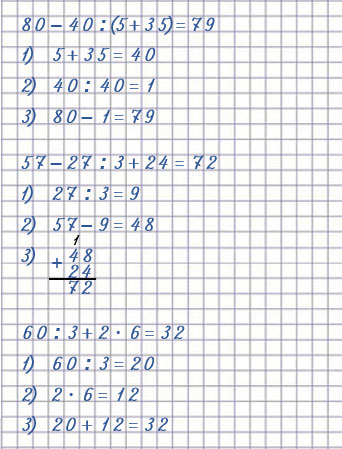 80 – 40 : (5 + 35) = 79
1) 5 + 35 = 40
2) 40 : 40 = 1
3) 80 – 1 = 79
57 – 27 : 3 + 24 = 72
1) 27 : 3 = 9
2) 57 – 9 = 48
1
3) + 48
24
72
60 : 3 + 2 · 6 = 32
1) 60 : 3 = 20
2) 2 · 6 = 12
3) 20 + 12 = 32